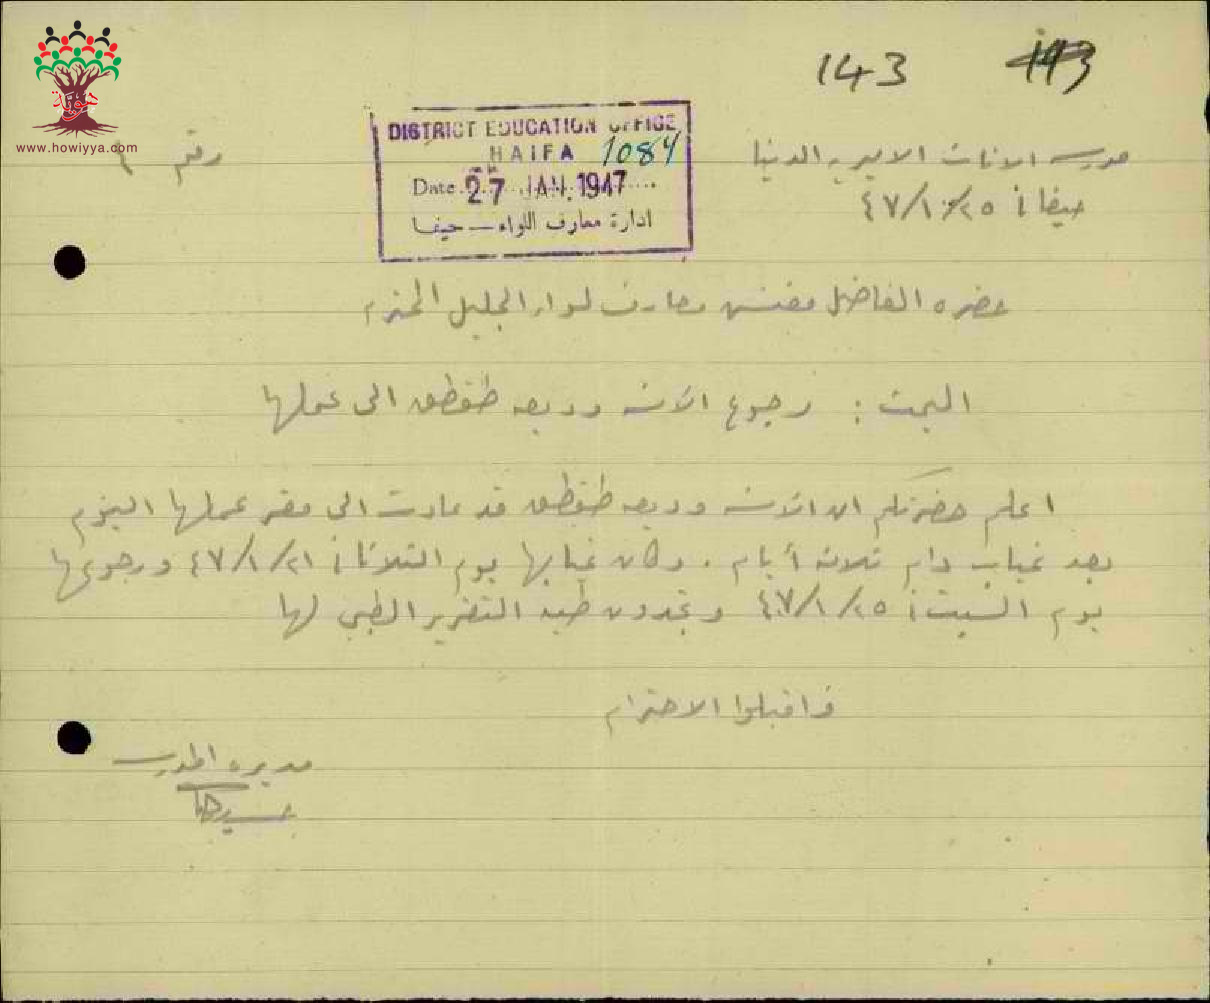 هوية
www.howiyya.com
143 143
DISTRICT EDUCATION OFFICE
HAIFA 1084
Date 27 JAN. 1947
ادارة معارف اللواء — حيفا
مدرسة الاناث الاميرية الدنيا
رقم ٩
حيفا في ٤٧/١/٢٥
حضرة الفاضل مفتش معارف لواء الجليل المحترم
البحث : رجوع الآنسة وديعة طقطق الى عملها
اعلم حضرتكم ان الآنسة وديعة طقطق قد عادت الى مقر عملها اليوم
بعد غياب دام ثلاثة أيام . وكان غيابها يوم الثلاثا في ٤٧/١/٢١ ورجوعها
يوم السبت في ٤٧/١/٢٥ وتجدون طيه التقرير الطبي لها
فاقبلوا الاحترام
مديرة المدرسة